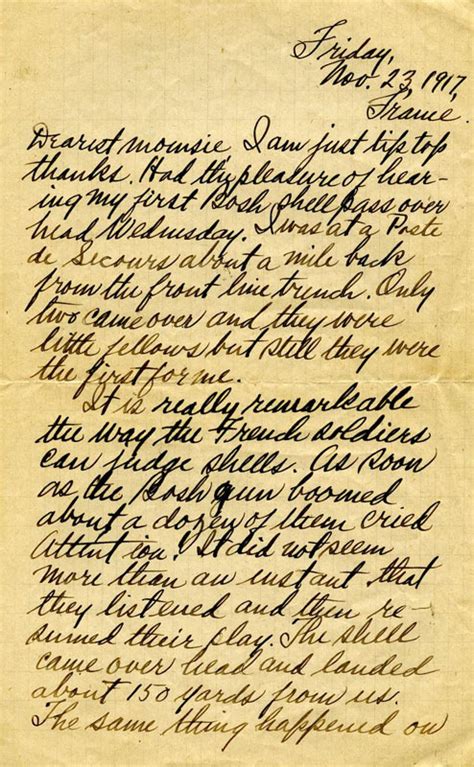 Friday,
Nov. 23, 1917,
France.
Dearest momsie, I am just tip top
thanks. Had the pleasure of hear-
ing my first Bosh shell pass over
head Wednesday. I was at a Poste
de Secours about a mile back
from the front line trench. Only
two came over and they were
little fellows but still they were
the first for me.
It is really remarkable
the way the French soldiers
can judge shells. As soon
as the Bosh gun boomed
about a dozen of them cried
Attention! It did not seem
more than an instant that
they listened and then re-
sumed their play. The shell
came over head and landed
about 150 yards from us.
The same thing happened on